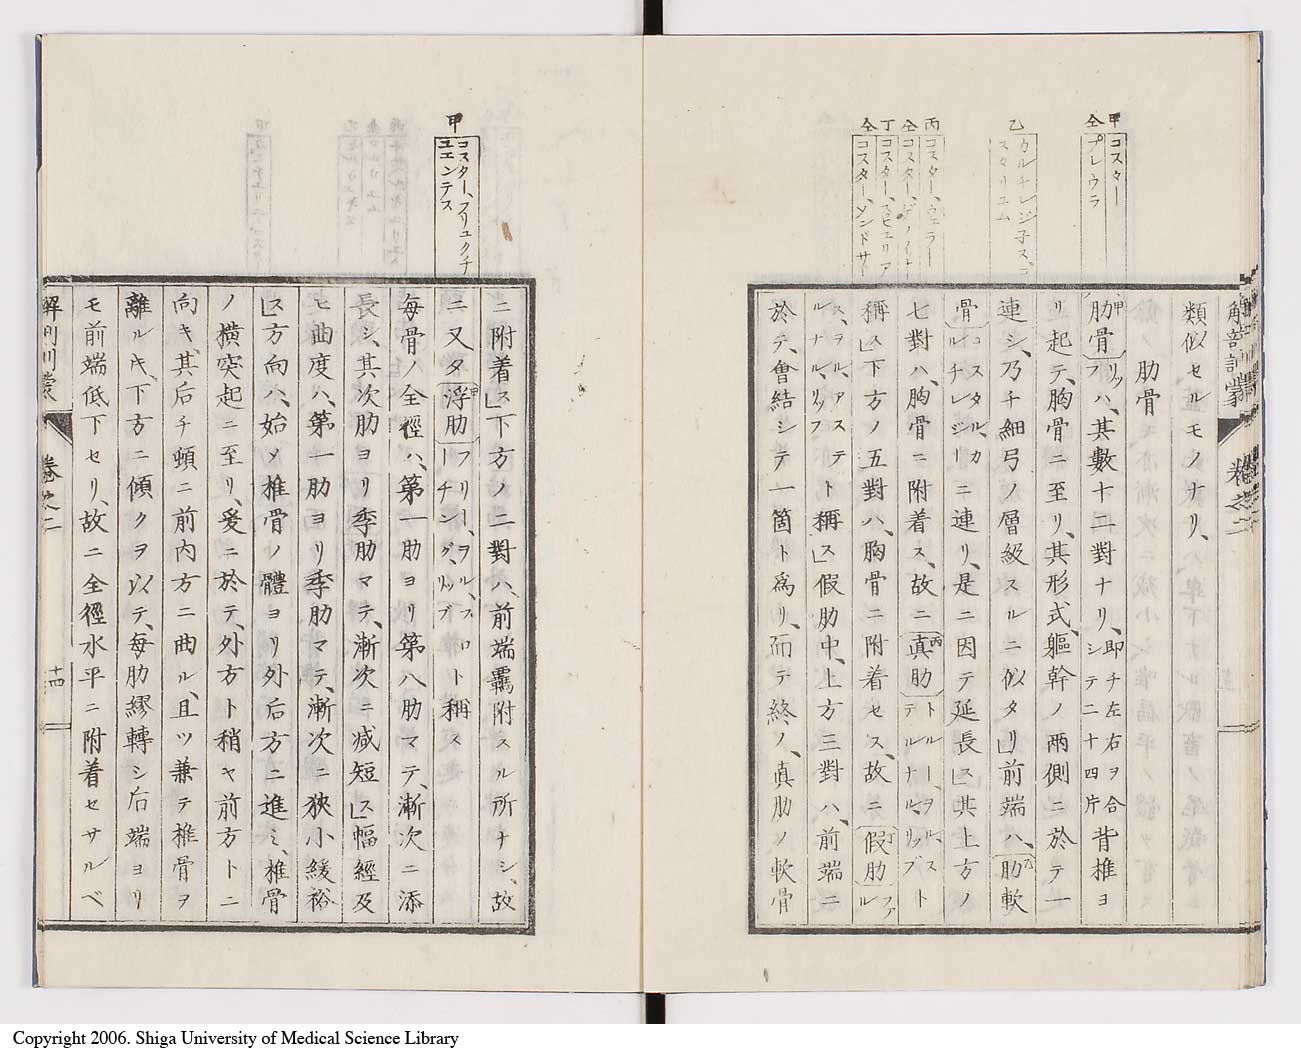 甲 コスター
仝 プレウラ
乙 カルチレジ子ス、コスタリユム
丙 コスター、ウェラー
仝 コスター、ゲノイナ
丁 コスター、スピユリア
仝 コスター、メンドサー
類似セルモノナリ、
肋骨
肋骨 甲 リッフハ、其數十二對ナリ、即チ左右ヲ合シテ二十四片 背椎ヨ
リ起テ、胸骨ニ至リ、其形式、軀幹ノ兩側ニ於テ一
連シ、乃チ細弓ノ層級スルニ似タリ」前端ハ、肋軟 乙
骨 コスタル、カルチレジー ニ連リ、是ニ因テ延長ス」其上方ノ
七對ハ、胸骨ニ附着ス、故ニ眞肋 丙 トルー、ヲルステルナル、リッブ ト
稱ス」下方ノ五對ハ、胸骨ニ附着セス、故ニ假肋 丁 ファル
ス、ヲル、アステルナル、リッフ ト稱ス」假肋中、上方三對ハ、前端ニ
於テ、會結シテ一箇ト爲リ、而テ終ノ、眞肋ノ軟骨
解剖訓蒙 卷之二
甲 コスター、フリュクチユエンテス
ニ附着ス」下方ノ二對ハ、前端羈附スル所ナシ、故
ニ又タ浮肋 甲 フリー、ヲルル、フロ ーチング、リッブ ト稱ス
毎骨ノ全徑ハ、第一肋ヨリ第八肋マテ、漸次ニ添
長シ、其次肋ヨリ季肋マテ、漸次ニ减短ス」幅經及
ヒ曲度ハ、第一肋ヨリ季肋マテ、漸次ニ狹小緩裕
ス」方向ハ、始メ椎骨ノ體ヨリ外后方ニ進ミ、椎骨
ノ橫突起ニ至リ、爰ニ於テ、外方ト稍ヤ前方トニ
向キ、其后チ頓ニ前内方ニ曲ル、且ツ兼テ椎骨ヲ
離ルキ、下方ニ傾クヲ以テ、毎肋繆轉シ后端ヨリ
モ前端低下セリ、故ニ全徑水平ニ附着セサルベ
卷之二 十四